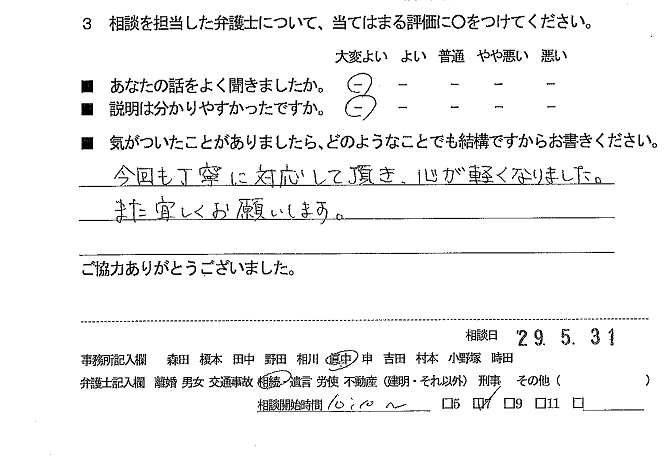 3 相談を担当した弁護士について、当てはまる評価に○をつけてください。
大変よい よい 普通 やや悪い 悪い
■ あなたの話をよく聞きましたか。 − − − − −
■ 説明は分かりやすかったですか。 − − − − −
■ 気がついたことがありましたら、どのようなことでも結構ですからお書きください。
今回も丁寧に対応して頂き、心が軽くなりました。
また宜しくお願いします。
ご協力ありがとうございました。
相談日 '29. 5. 31
事務所記入欄 森田 榎本 田中 野田 相川 畠中 申 吉田 村本 小野塚 時田
弁護士記入欄 離婚 男女 交通事故 相続・遺言 労使 不動産(建明・それ以外) 刑事 その他( )
相談開始時間 10:10〜 □5 □7 □9 □11 □